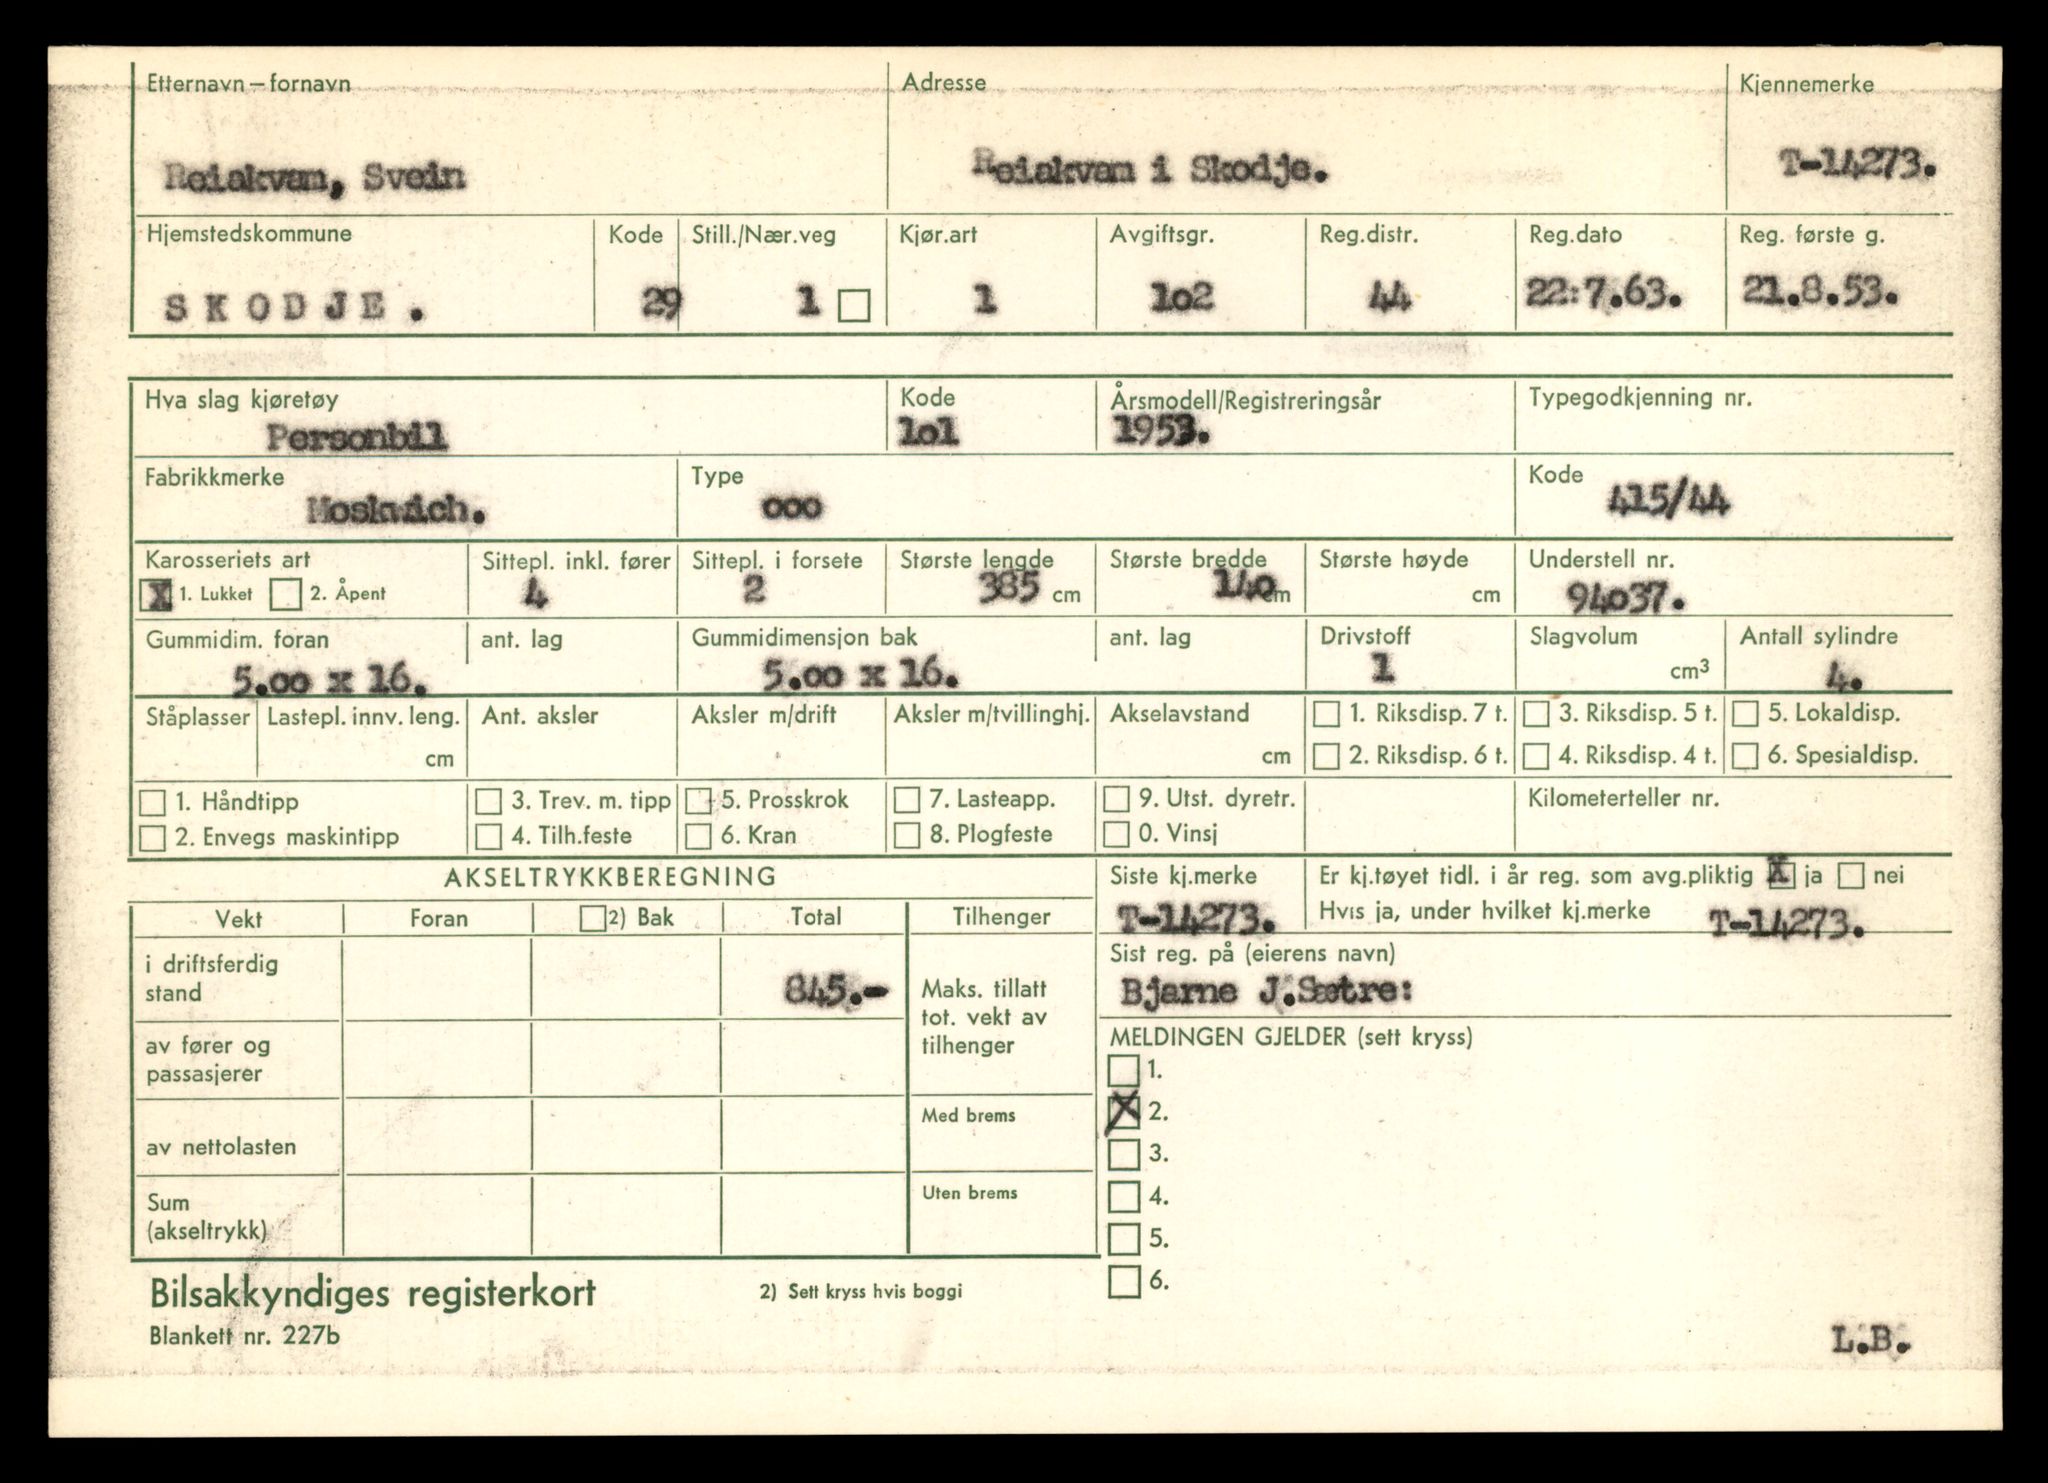 Etternavn – fornavn Adresse Kjennemerke
Reiakvam, Svein Reiakvam i Skodje. T-14273.
Hjemstedskommune Kode Still./Nær.veg Kjør.art Avgiftsgr. Reg.distr. Reg.dato Reg. første g.
SKODJE. 29 1 1 1o2 44 22:7.63. 21.8.53.
Hva slag kjøretøy Kode Årsmodell/Registreringsår Typegodkjenning nr.
Personbil 1o1 1953.
Fabrikkmerke Type Kode
Moskvich. ooo 415/44
Karosseriets art Sittepl. inkl. fører Sittepl. i forsete Største lengde Største bredde Største høyde Understell nr.
X 1. Lukket 2. Åpent 4 2 385 cm 140 cm cm 94o37.
Gummidim. foran ant. lag Gummidimensjon bak ant. lag Drivstoff Slagvolum Antall sylindre
5.oo x 16. 5.oo x 16. 1 cm³ 4.
Ståplasser Lastepl. innv. leng. Ant. aksler Aksler m/drift Aksler m/tvillinghj. Akselavstand 1. Riksdisp. 7 t. 3. Riksdisp. 5 t. 5. Lokaldisp.
cm cm 2. Riksdisp. 6 t. 4. Riksdisp. 4 t. 6. Spesialdisp.
1. Håndtipp 3. Trev. m. tipp 5. Prosskrok 7. Lasteapp. 9. Utst. dyretr. Kilometerteller nr.
2. Envegs maskintipp 4. Tilh.feste 6. Kran 8. Plogfeste 0. Vinsj
AKSELTRYKKBEREGNING Siste kj.merke Er kj.tøyet tidl. i år reg. som avg.pliktig X ja nei
Vekt Foran 2) Bak Total Tilhenger T-14273. Hvis ja, under hvilket kj.merke T-14273.
i driftsferdig
stand 845.-
Maks. tillatt
tot. vekt av
tilhenger
Sist reg. på (eierens navn)
Bjarne J.Sætre:
av fører og
passasjerer
MELDINGEN GJELDER (sett kryss)
1.
X 2.
3.
4.
5.
6.
av nettolasten Med brems
Sum
(akseltrykk) Uten brems
Bilsakkyndiges registerkort 2) Sett kryss hvis boggi
Blankett nr. 227b L.B.